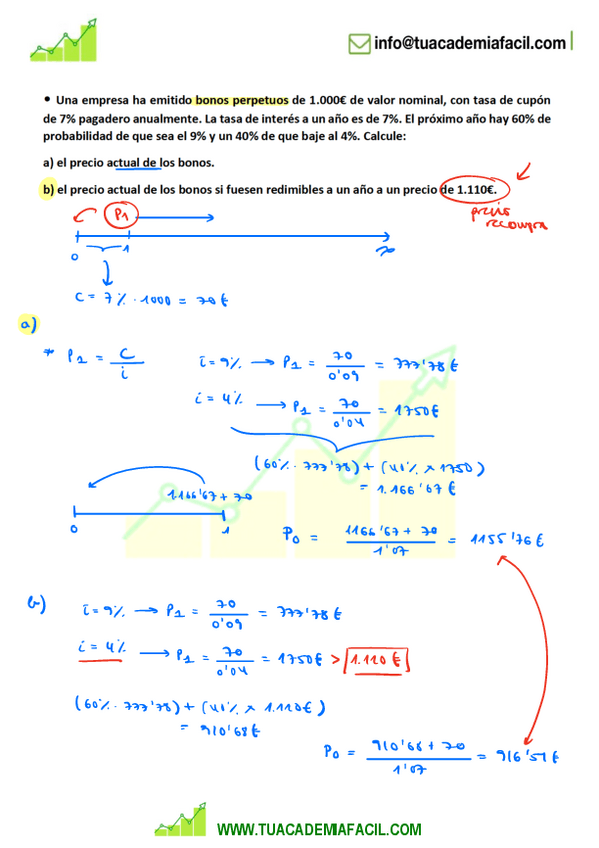 info@tuacademiafacil.com
• Una empresa ha emitido bonos perpetuos de 1.000€ de valor nominal, con tasa de cupón
de 7% pagadero anualmente. La tasa de interés a un año es de 7%. El próximo año hay 60% de
probabilidad de que sea el 9% y un 40% de que baje al 4%. Calcule:
a) el precio actual de los bonos.
b) el precio actual de los bonos si fuesen redimibles a un año a un precio de 1.110€.
precio
recompra
P1
0 1 ∞
C = 7% · 1000 = 70€
a)
* P1 = C/i
i = 9% → P1 = 70/0'09 = 777'78€
i = 4% → P1 = 70/0'04 = 1750€
(60% · 777'78) + (40% × 1750)
= 1.166'67€
1.166'67 + 70
0 1
P0 = 1166'67 + 70/1'07 = 1155'76€
b)
i = 9% → P1 = 70/0'09 = 777'78€
i = 4% → P1 = 70/0'04 = 1750€ > 1.110€
(60% · 777'78) + (40% × 1.110€)
= 910'68€
P0 = 910'68 + 70/1'07 = 916'51€
WWW.TUACADEMIAFACIL.COM